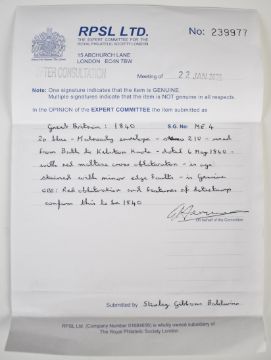 RPSL LTD.
THE EXPERT COMMITTEE OF THE
ROYAL PHILATELIC SOCIETY LONDON
15 ABCHURCH LANE
LONDON EC4N 7BW
No: 239977
AFTER CONSULTATION
Meeting of 22 JAN 2020
Note: One signature indicates that the item is GENUINE.
Multiple signatures indicate that the item is NOT genuine in all respects.
In the OPINION of the EXPERT COMMITTEE the item submitted as
Great Britain: 1840 S.G. No: ME 4
2d blue - Mulready envelope - A210 - used
from Bath to - dated 6 May 1840 -
with red maltese cross obliteration - is age
stained with minor edge faults - is genuine
OBS: Red obliteration and features of datestamp
confirm this to be 1840
On behalf of the Committee
Submitted by Stanley Gibbons Baldwins
RPSL LTD. (Company Number ) is wholly owned subsidiary of
The Royal Philatelic Society London.